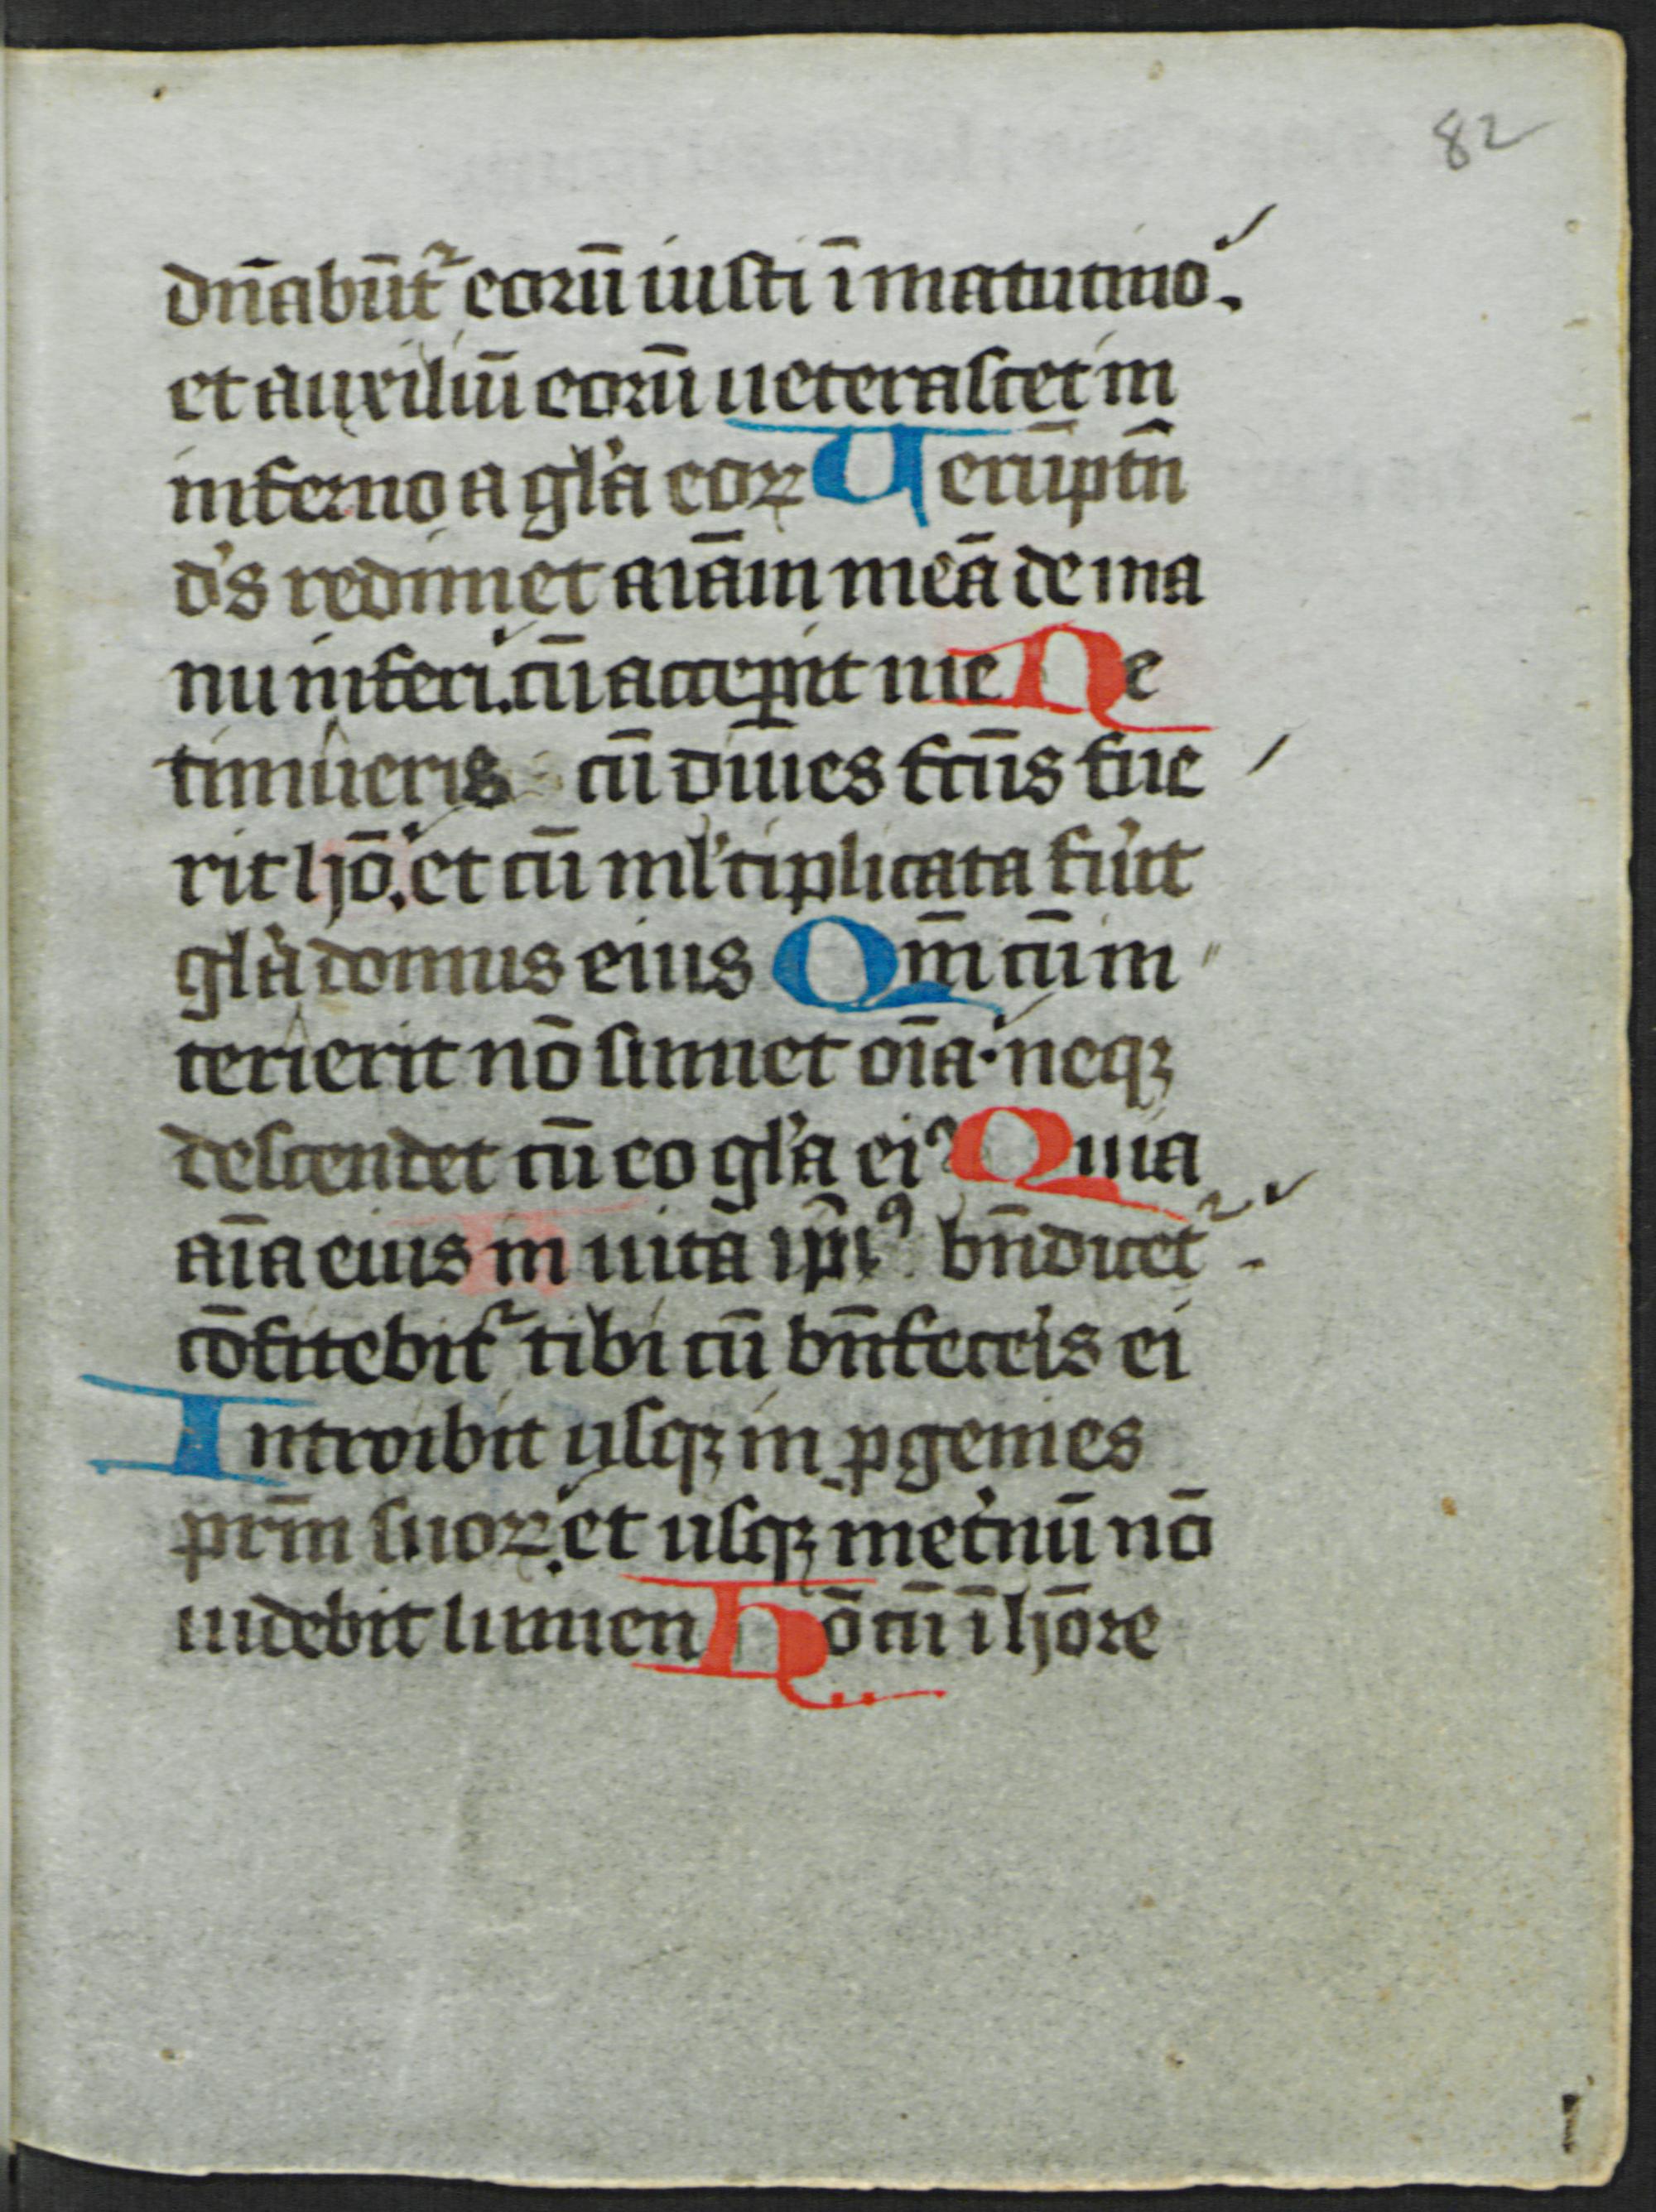 82
dn̄abūt᷑ eorū iusti ī matutino.
et auxiliū eorū ueterascet in
inferno a gl'a eoꝝ Verūptn̄
d's redimet aīam meā de ma
nu inferi. cū acceꝑit me Ne
timueris cū diues fcūs fue
rit hō. et cū ml'tiplicata fu'it
gl'a domus eius Qm̄ cū in
terierit nō sumet oīa. neqꝫ
descendet cū eo gl'a eiꝰ Quia
aīa eius in uita ip̄iꝰ bn̄dicet᷑.
cōfitebit᷑ tibi cū bn̄fecer's ei
Introibit usqꝫ in ꝓgenies
pr̄m suoꝝ. et usqꝫ inet'nū nō
uidebit lumen Hō cū ī hōre